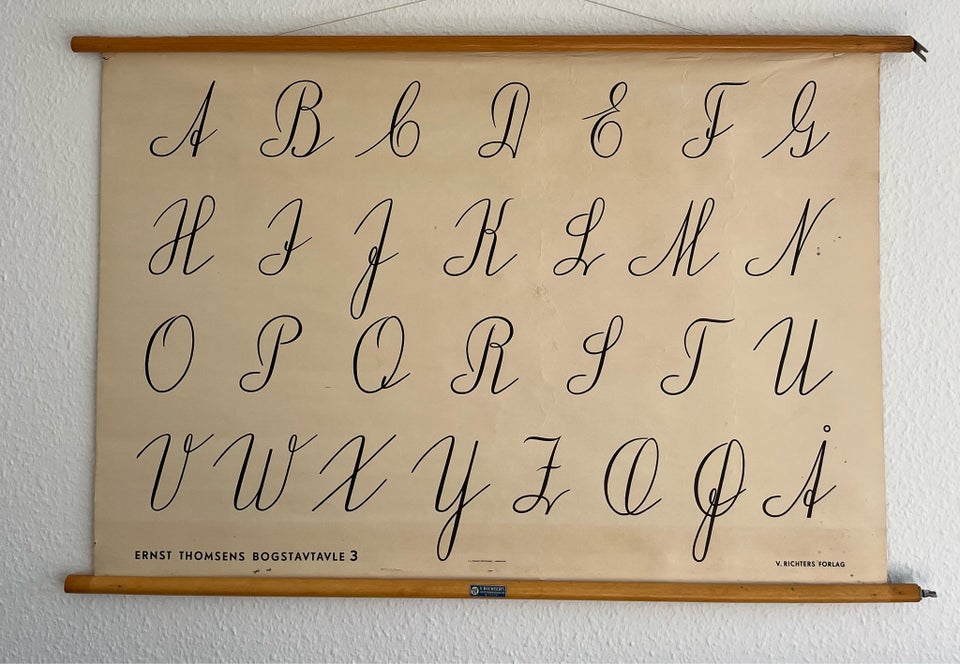 A B C D E F G
H I J K L M N
O P Q R S T U
V W X Y Z Æ Ø Å
ERNST THOMSENS BOGSTAVTAVLE 3
V. RICHTERS FORLAG
V. RICHTERS